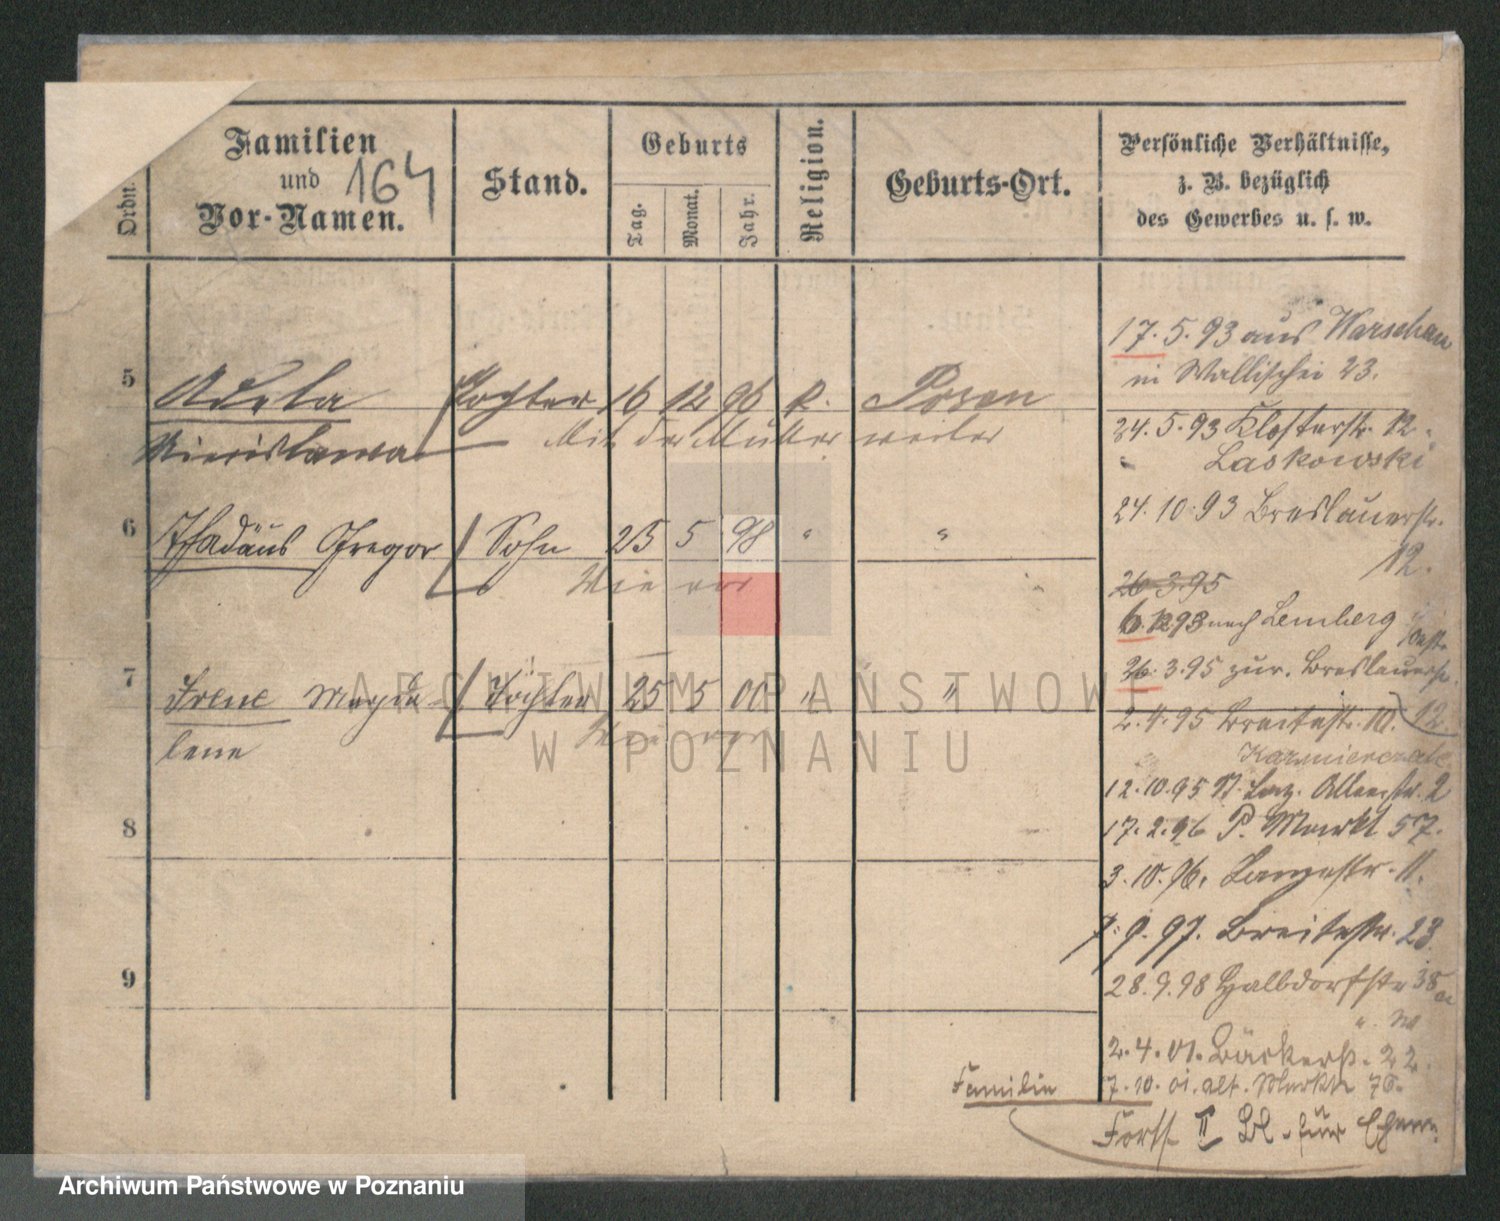 Familien
und
Vor-Namen.
164
Ordn.
Stand.
Geburts
Tag.
Monat.
Jahr.
Religion.
Geburts-Ort.
Persönliche Verhältnisse,
z. B. bezüglich
des Gewerbes u. s. w.
5 Adela Tochter 16 12 96 k. Posen
Mit der Mutter weiter
6 Thadäus Gregor Sohn 25 5 98 " "
Wie vor
7 Irene Magda- Tochter 25 5 00 " "
lene Wie vor
8
9
17.5.93 aus Warschau
in Wallischei 23.
24.5.93 Klosterstr. 12.
Laskowski
24.10.93 Breslauerstr.
12.
26.3.95
6.12.93 nach Lemberg
26.3.95 zur. Breslauerstr.
12
2.4.95 Breitestr. 10.
Kazmierczak
12.10.95 St. Laz. 2
17.2.96 P. Markt 57.
3.10.96. Langestr. 11.
9.97. Breitestr. 23.
28.9.98 Halbdorfstr 38
2.4.01. Bäckerstr. 22.
Familie 7.10.01. alt. Markt 76.
Forts. II Bl. für
ARCHIWUM PAŃSTWOWE
W POZNANIU
Archiwum Państwowe w Poznaniu